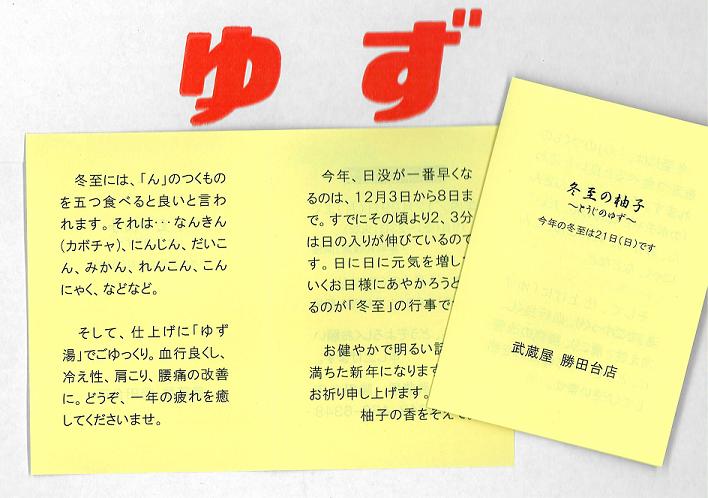 ゆず
冬至には、「ん」のつくもの
を五つ食べると良いと言わ
れます。それは・・・なんきん
(カボチャ)、にんじん、だいこ
ん、みかん、れんこん、こん
にゃく、などなど。
そして、仕上げに「ゆず
湯」でごゆっくり。血行良くし、
冷え性、肩こり、腰痛の改善
に。どうぞ、一年の疲れを癒
してくださいませ。
今年、日没が一番早くな
るのは、12月3日から8日ま
で。すでにその頃より2、3分
は日の入りが伸びているので
す。日に日に元気を増して
いくお日様にあやかろうと
るのが「冬至」の行事で
お健やかで明るい
満ちた新年になります
お祈り申し上げます。
柚子の香をそえて。
冬至の柚子
～とうじのゆず～
今年の冬至は21日(日)です
武蔵屋 勝田台店